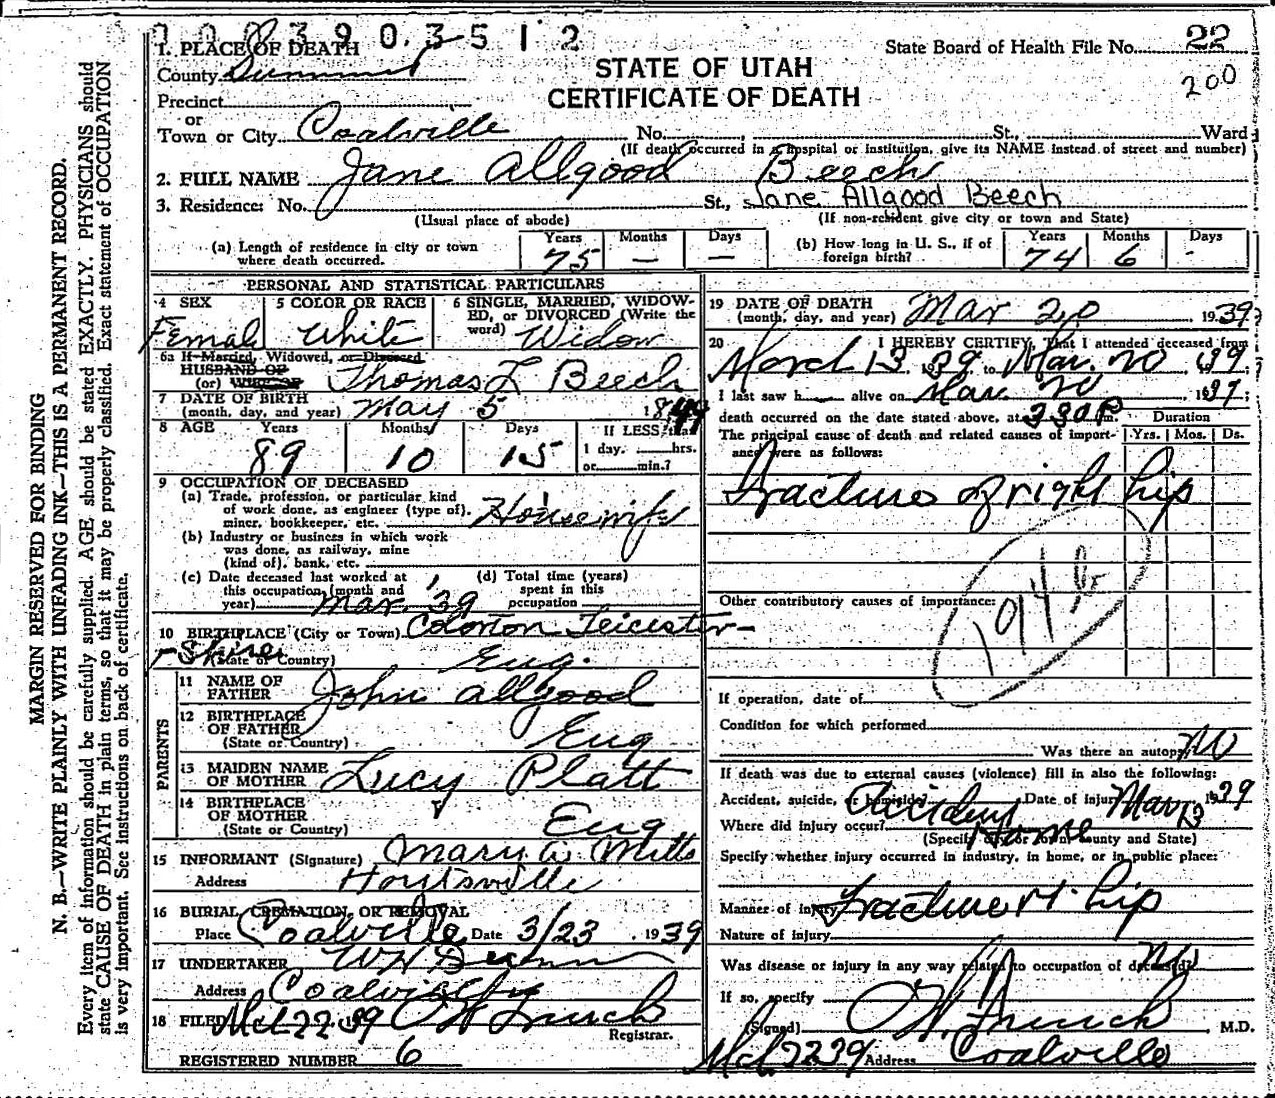 0 0 0 3 9 0 3 5 1 2
State Board of Health File No. 22
200
STATE OF UTAH
CERTIFICATE OF DEATH
1. PLACE OF DEATH
County Summit
Precinct
or
Town or City Coalville No. , St., Ward
(If death occurred in a hospital or institution, give its NAME instead of street and number)
2. FULL NAME Jane Allgood Beech
3. Residence: No. St., Jane Allgood Beech
(Usual place of abode) (If non-resident give city or town and State)
(a) Length of residence in city or town where death occurred. Years 75 Months — Days —
(b) How long in U. S., if of foreign birth? Years 74 Months 6 Days -
PERSONAL AND STATISTICAL PARTICULARS
4 SEX Femal
5 COLOR OR RACE White
6 SINGLE, MARRIED, WIDOWED, or DIVORCED (Write the word) Widow
6a If Married, Widowed, or Divorced
HUSBAND OF
(or) WIFE OF Thomas L Beech
7 DATE OF BIRTH
(month, day, and year) May 5 1849
8 AGE Years 89 Months 10 Days 15 If LESS than 1 day, hrs. or min.?
9 OCCUPATION OF DECEASED
(a) Trade, profession, or particular kind
of work done, as engineer (type of),
miner, bookkeeper, etc. Housewife
(b) Industry or business in which work
was done, as railway, mine
(kind of), bank, etc.
(c) Date deceased last worked at
this occupation (month and
year) Mar. '39
(d) Total time (years)
spent in this
occupation
10 BIRTHPLACE (City or Town) Colorton Leicester-
Shire
(State or Country) Eng.
PARENTS
11 NAME OF
FATHER John Allgood
12 BIRTHPLACE
OF FATHER
(State or Country) Eng
13 MAIDEN NAME
OF MOTHER Lucy Platt
14 BIRTHPLACE
OF MOTHER
(State or Country) Eng
15 INFORMANT (Signature) Mary A. Mills
Address Hoytsville
16 BURIAL, CREMATION, OR REMOVAL
Place Coalville Date 3/23, 1939
17 UNDERTAKER W H
Address Coalville
18 FILED Mch 22 39 Registrar.
REGISTERED NUMBER 6
19 DATE OF DEATH
(month, day, and year) Mar 20, 1939
20 I HEREBY CERTIFY, That I attended deceased from
March 13, 1939, to Mar. 20, 1939.
I last saw h alive on Mar 20, 1939,
death occurred on the date stated above, at 2 30 P m.
The principal cause of death and related causes of importance were as follows:
Duration
Yrs. Mos. Ds.
Fracture of right hip
194 b
Other contributory causes of importance:
If operation, date of
Condition for which performed
Was there an autopsy? No
If death was due to external causes (violence) fill in also the following:
Accident, suicide, or homicide? Accident Date of injury Mar 13 1939
Where did injury occur? Home
(Specify city or town, county and State)
Specify whether injury occurred in industry, in home, or in public place:
Manner of injury Fracture rt. hip
Nature of injury
Was disease or injury in any way related to occupation of deceased? No
If so, specify
(Signed) , M.D.
Mch 22 39 Address Coalville
MARGIN RESERVED FOR BINDING
N. B.—WRITE PLAINLY WITH UNFADING INK—THIS IS A PERMANENT RECORD.
Every item of information should be carefully supplied. AGE should be stated EXACTLY. PHYSICIANS should
state CAUSE OF DEATH in plain terms, so that it may be properly classified. Exact statement of OCCUPATION
is very important. See instructions on back of certificate.